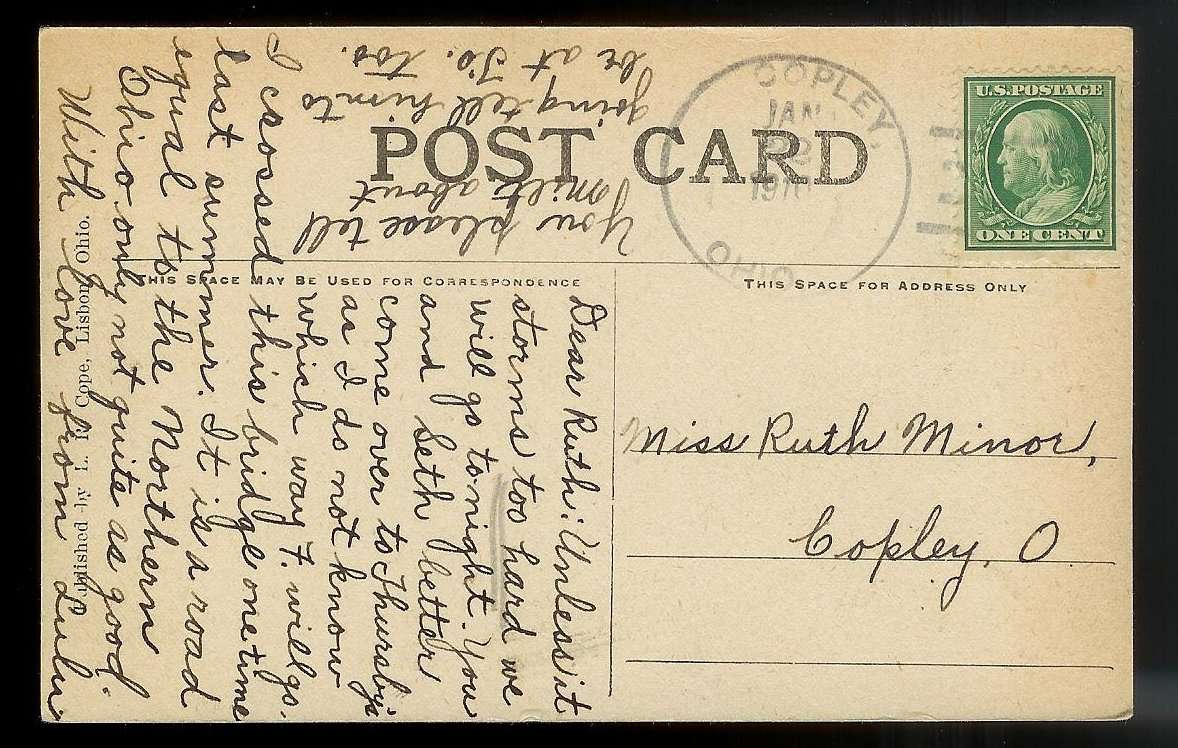 POST CARD
COPLEY,
JAN
22
OHIO
U.S. POSTAGE
ONE CENT
THIS SPACE MAY BE USED FOR CORRESPONDENCE
THIS SPACE FOR ADDRESS ONLY
Miss Ruth Minor,
Copley, O
Dear Ruth: Unless it
storms too hard we
will go to-night. You
and Seth better
come over to Thursby's
as I do not know
which way F. will go.
I crossed this bridge one time
last summer. It is a road
equal to the Northern
Ohio only not quite as good.
With love from Lulu
You please tell
about
going tell him to
be at too.
Published by L. Cope, Lisbon, Ohio.